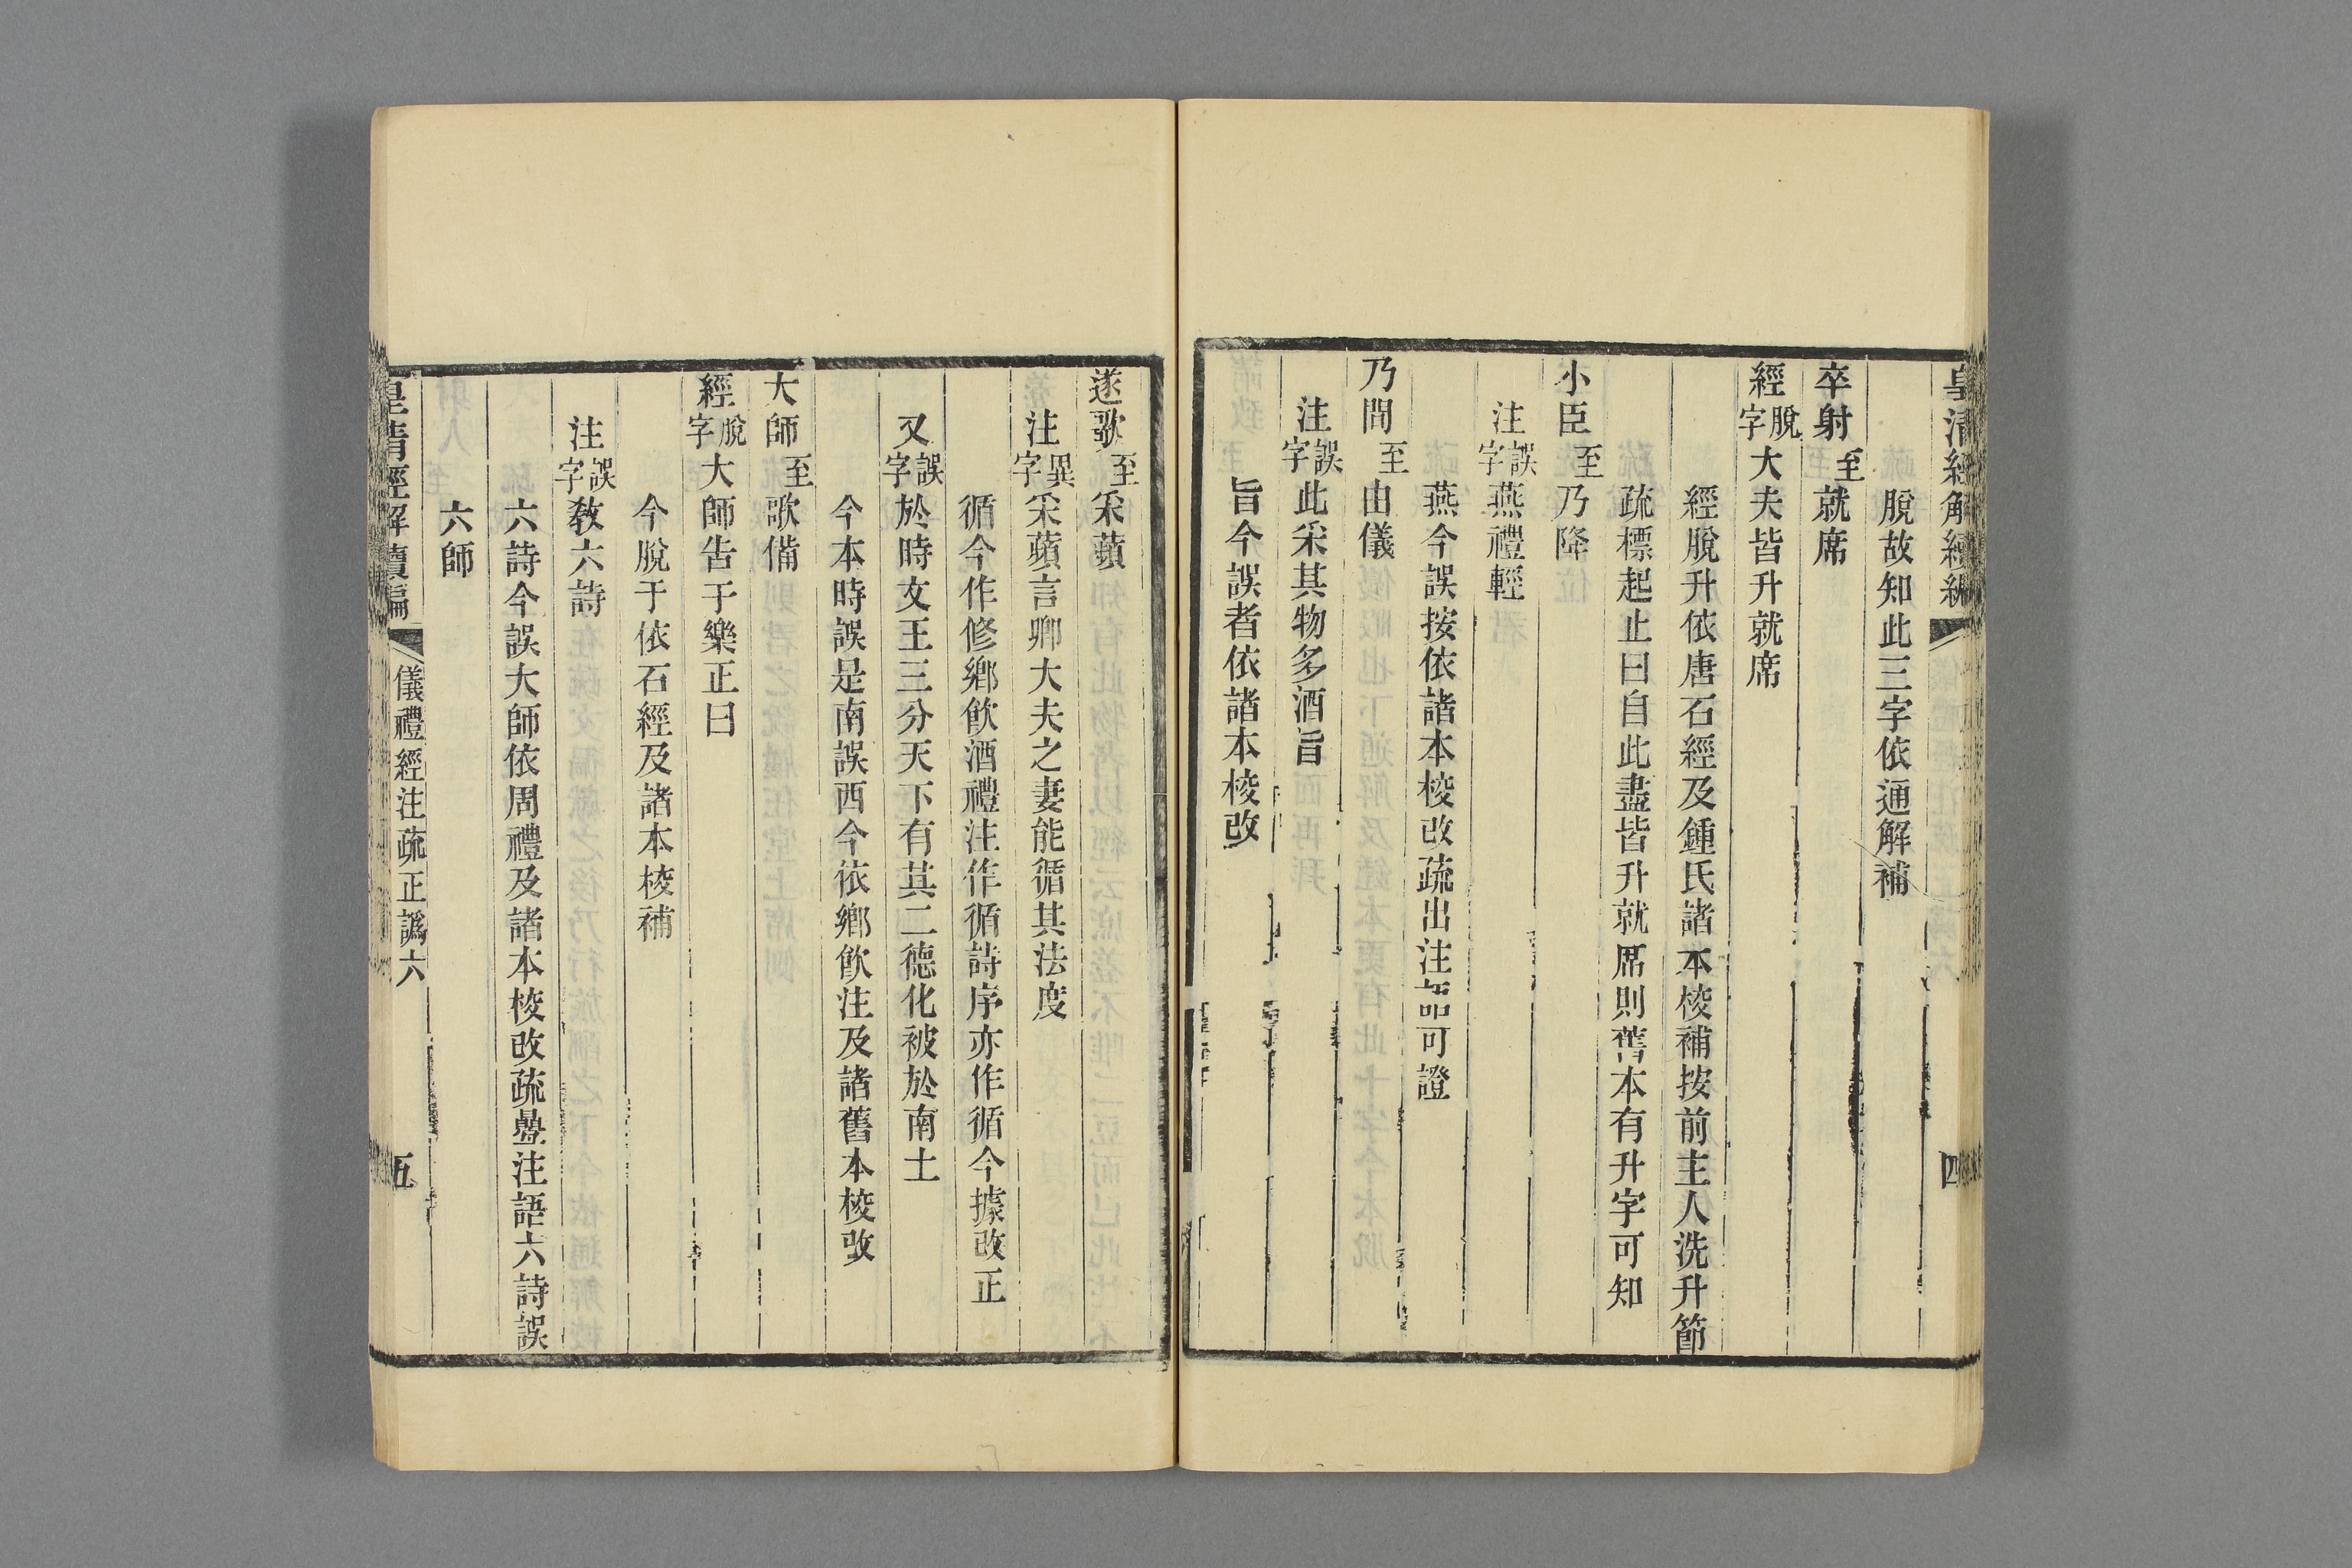 皇清經解續編
四
脫故知此三字依通解補
卒射至就席
經脫字大夫皆升就席
經脫升依唐石經及鍾氏諸本校補按前主人洗升節
疏標起止曰自此盡皆升就席則舊本有升字可知
小臣至乃降
注誤字燕禮輕
燕今誤按依諸本校改疏出注語可證
乃間至由儀
注誤字此采其物多酒旨
旨今誤者依諸本校改
遂歌至采蘋
注異字采蘋言卿大夫之妻能循其法度
循今作修鄉飲酒禮注作循詩序亦作循今據改正
又誤字於時文王三分天下有其二德化被於南土
今本時誤是南誤西今依鄉飲注及諸舊本校改
大師至歌備
經脫字大師告于樂正曰
今脫于依石經及諸本校補
注誤字教六詩
六詩今誤大師依周禮及諸本校改疏疊注語六詩誤
六師
皇清經解續編
儀禮經注疏正譌六
五